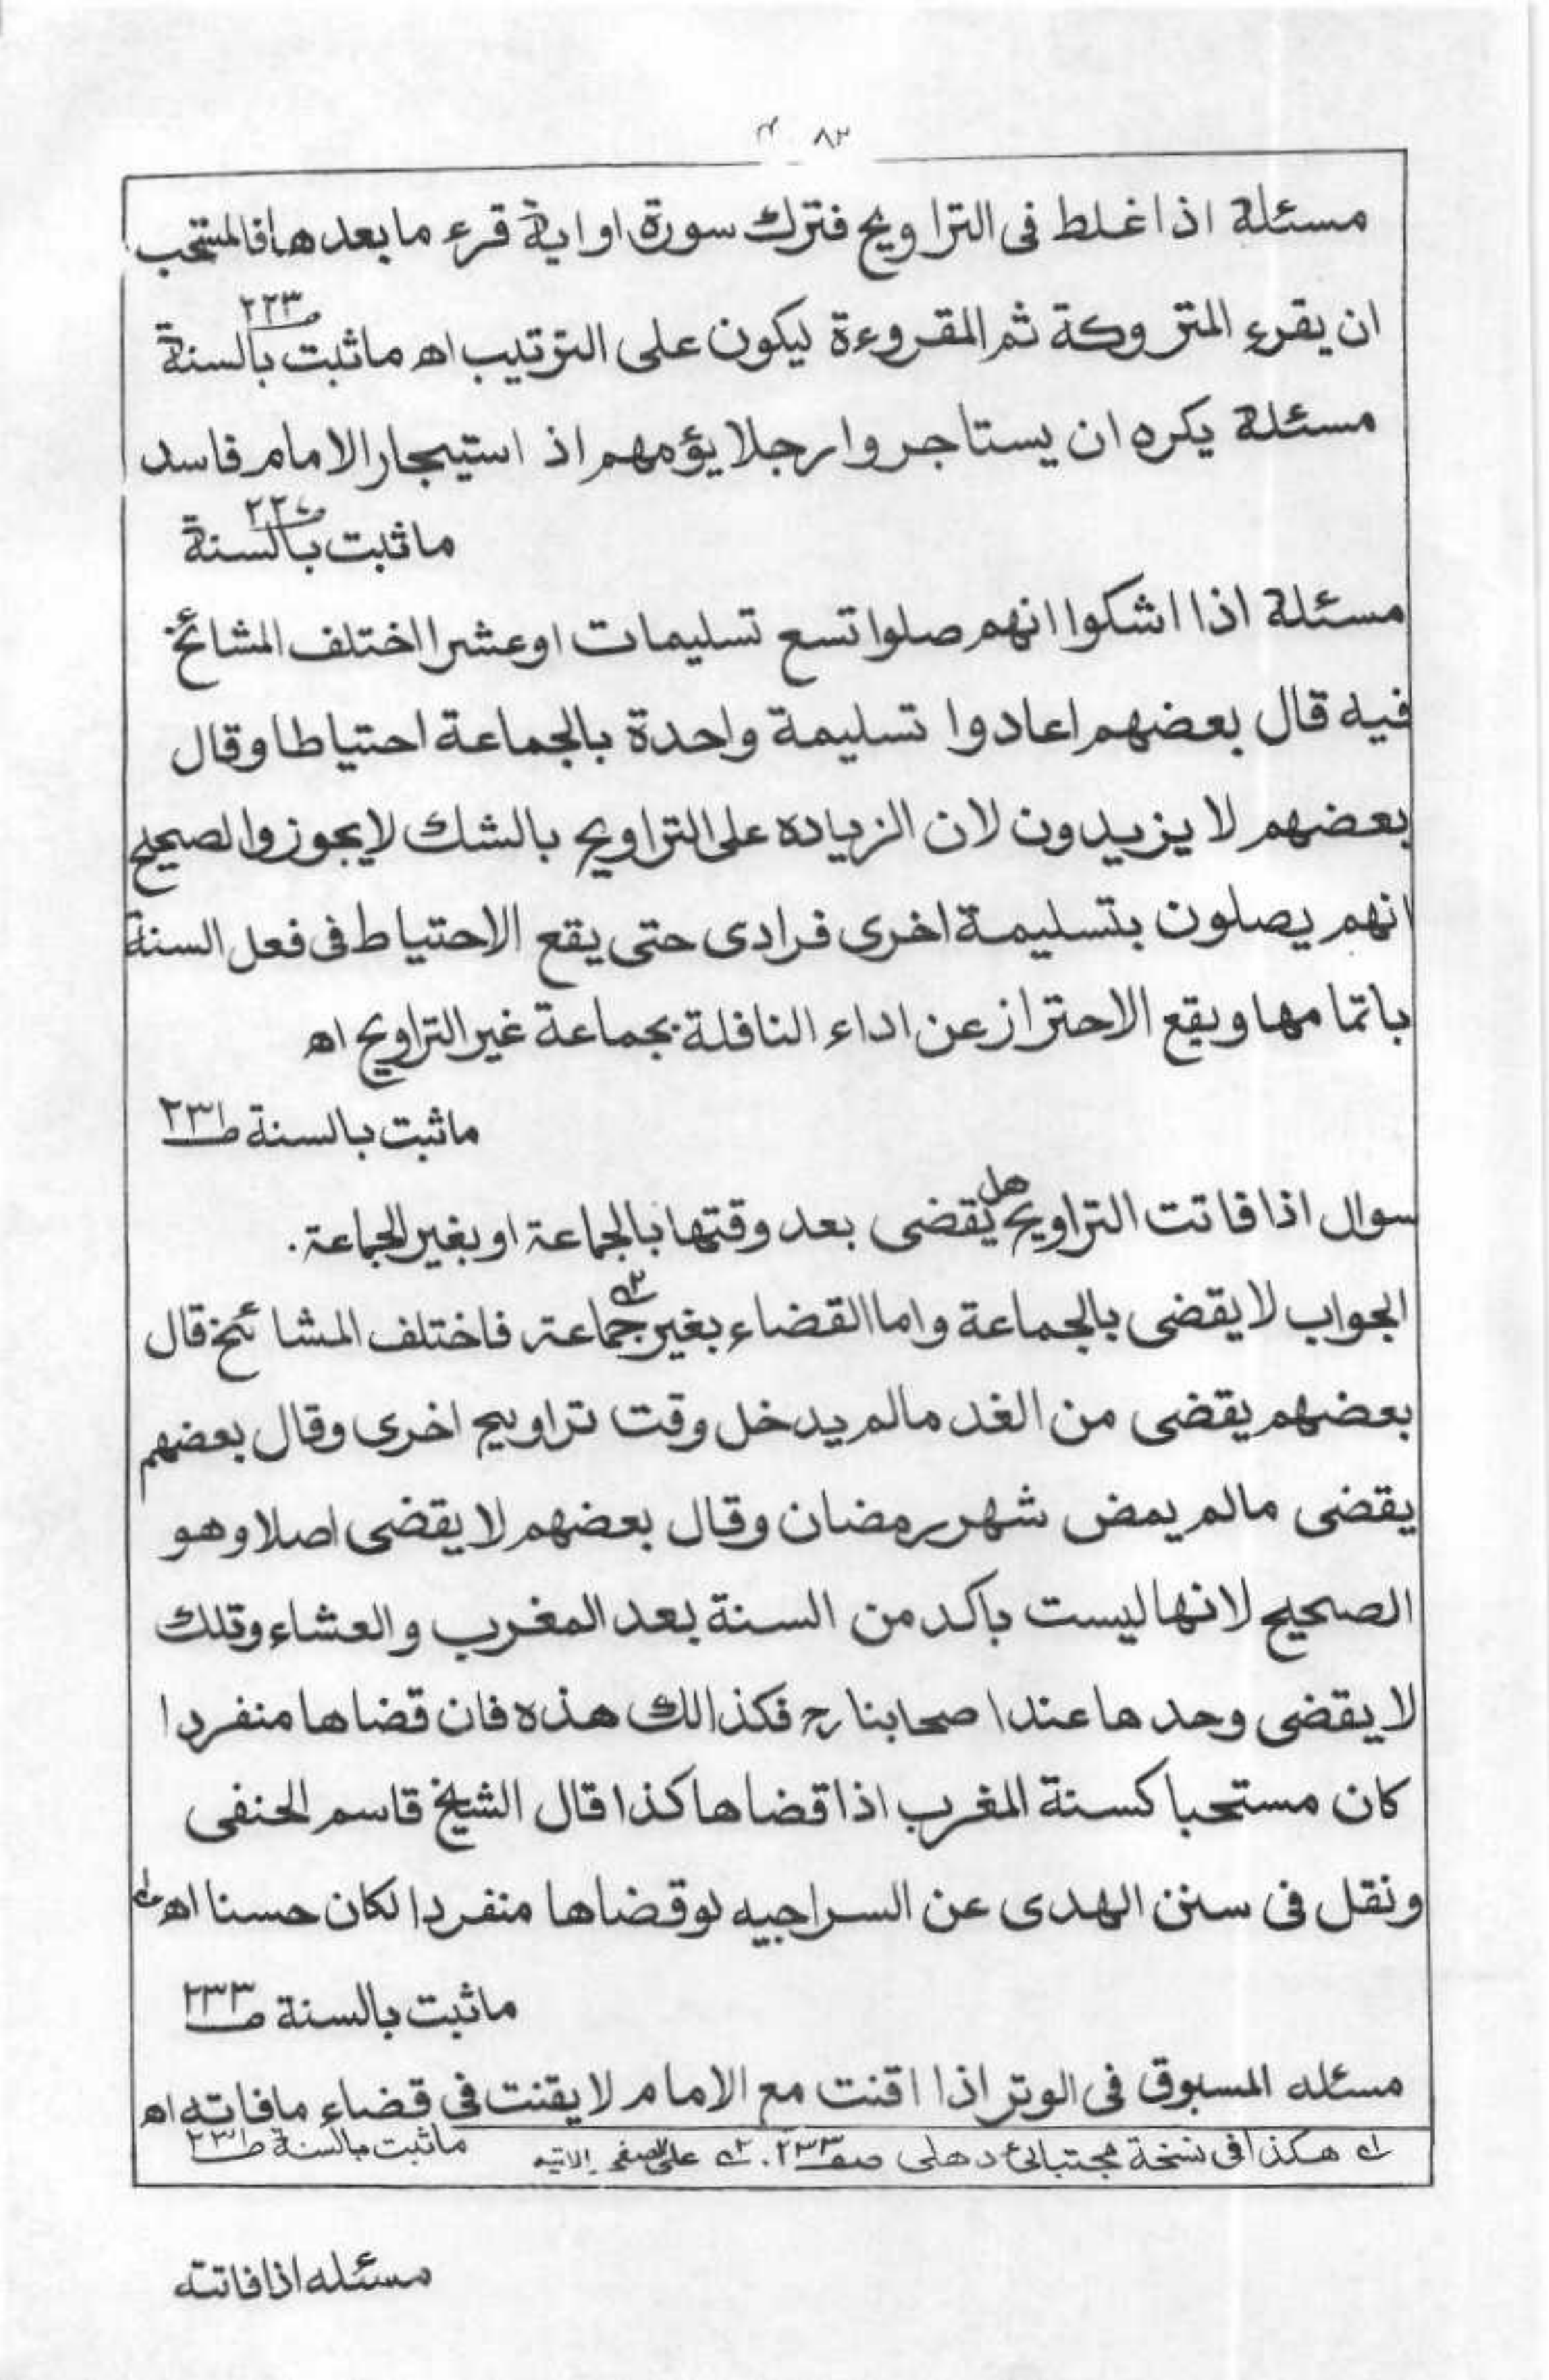 ٨٣
مسئلة اذا غلط فى التراويح فترك سورة او اية قرء ما بعدها فالمستحب
ان يقرء المتروكة ثم المقروءة ليكون على الترتيب اه ماثبت بالسنة ص٢٢٣
مسئلة يكره ان يستاجروا رجلا يؤمهم اذ استيجار الامام فاسد
ماثبت بالسنة
مسئلة اذا اشكوا انهم صلوا تسع تسليمات او عشرا اختلف المشائخ
فيه قال بعضهم اعادوا تسليمة واحدة بالجماعة احتياطا وقال
بعضهم لا يزيدون لان الزياده على التراويح بالشك لا يجوز والصحيح
انهم يصلون بتسليمة اخرى فرادى حتى يقع الاحتياط فى فعل السنة
باتمامها ويقع الاحتراز عن اداء النافلة بجماعة غير التراويح اه
ماثبت بالسنة ص٢٣١
سوال اذا فاتت التراويح هل يقضى بعد وقتها بالجماعة او بغير الجماعة.
الجواب لا يقضى بالجماعة واما القضاء بغير جماعة فاختلف المشائخ قال
بعضهم يقضى من الغد مالم يدخل وقت تراويح اخرى وقال بعضهم
يقضى مالم يمض شهر رمضان وقال بعضهم لا يقضى اصلا وهو
الصحيح لانها ليست باكد من السنة بعد المغرب والعشاء وتلك
لا يقضى وحدها عند اصحابنا رح فكذالك هذه فان قضاها منفردا
كان مستحبا كسنة المغرب اذا قضاها كذا قال الشيخ قاسم الحنفى
ونقل فى سنن الهدى عن السراجيه لو قضاها منفردا لكان حسنا اه
ماثبت بالسنة ص٢٣٣
مسئله المسبوق فى الوتر اذا اقنت مع الامام لا يقنت فى قضاء مافاته اه
ماثبت بالسنة ص٢٣١
له هكذا فى نسخة مجتبائ دهلى صف٢٣٣. ٢ه على الصفحه الاتيه
مسئله اذا فاتته